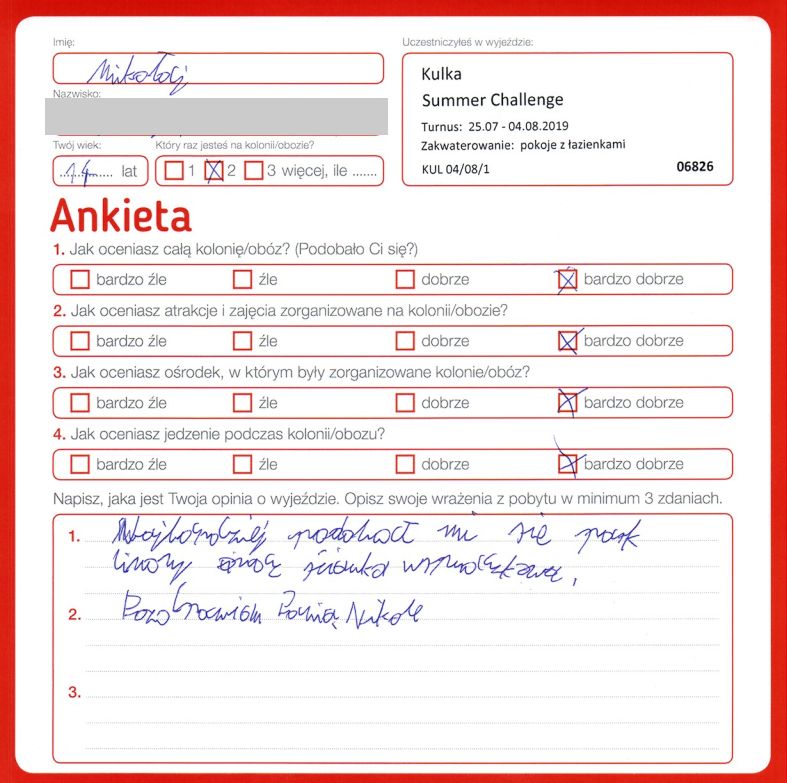 Imię:
Mikołaj
Nazwisko:
Twój wiek:
14 lat
Który raz jesteś na kolonii/obozie?
1 2 3 więcej, ile .......
Uczestniczyłeś w wyjeździe:
Kulka
Summer Challenge
Turnus: 25.07 - 04.08.2019
Zakwaterowanie: pokoje z łazienkami
KUL 04/08/1 06826
Ankieta
1. Jak oceniasz całą kolonię/obóz? (Podobało Ci się?)
bardzo źle źle dobrze bardzo dobrze
2. Jak oceniasz atrakcje i zajęcia zorganizowane na kolonii/obozie?
bardzo źle źle dobrze bardzo dobrze
3. Jak oceniasz ośrodek, w którym były zorganizowane kolonie/obóz?
bardzo źle źle dobrze bardzo dobrze
4. Jak oceniasz jedzenie podczas kolonii/obozu?
bardzo źle źle dobrze bardzo dobrze
Napisz, jaka jest Twoja opinia o wyjeździe. Opisz swoje wrażenia z pobytu w minimum 3 zdaniach.
1. Najbardziej podobał mi się park
linowy ścianka
2. Pozdrawiam Panią Nikole
3.